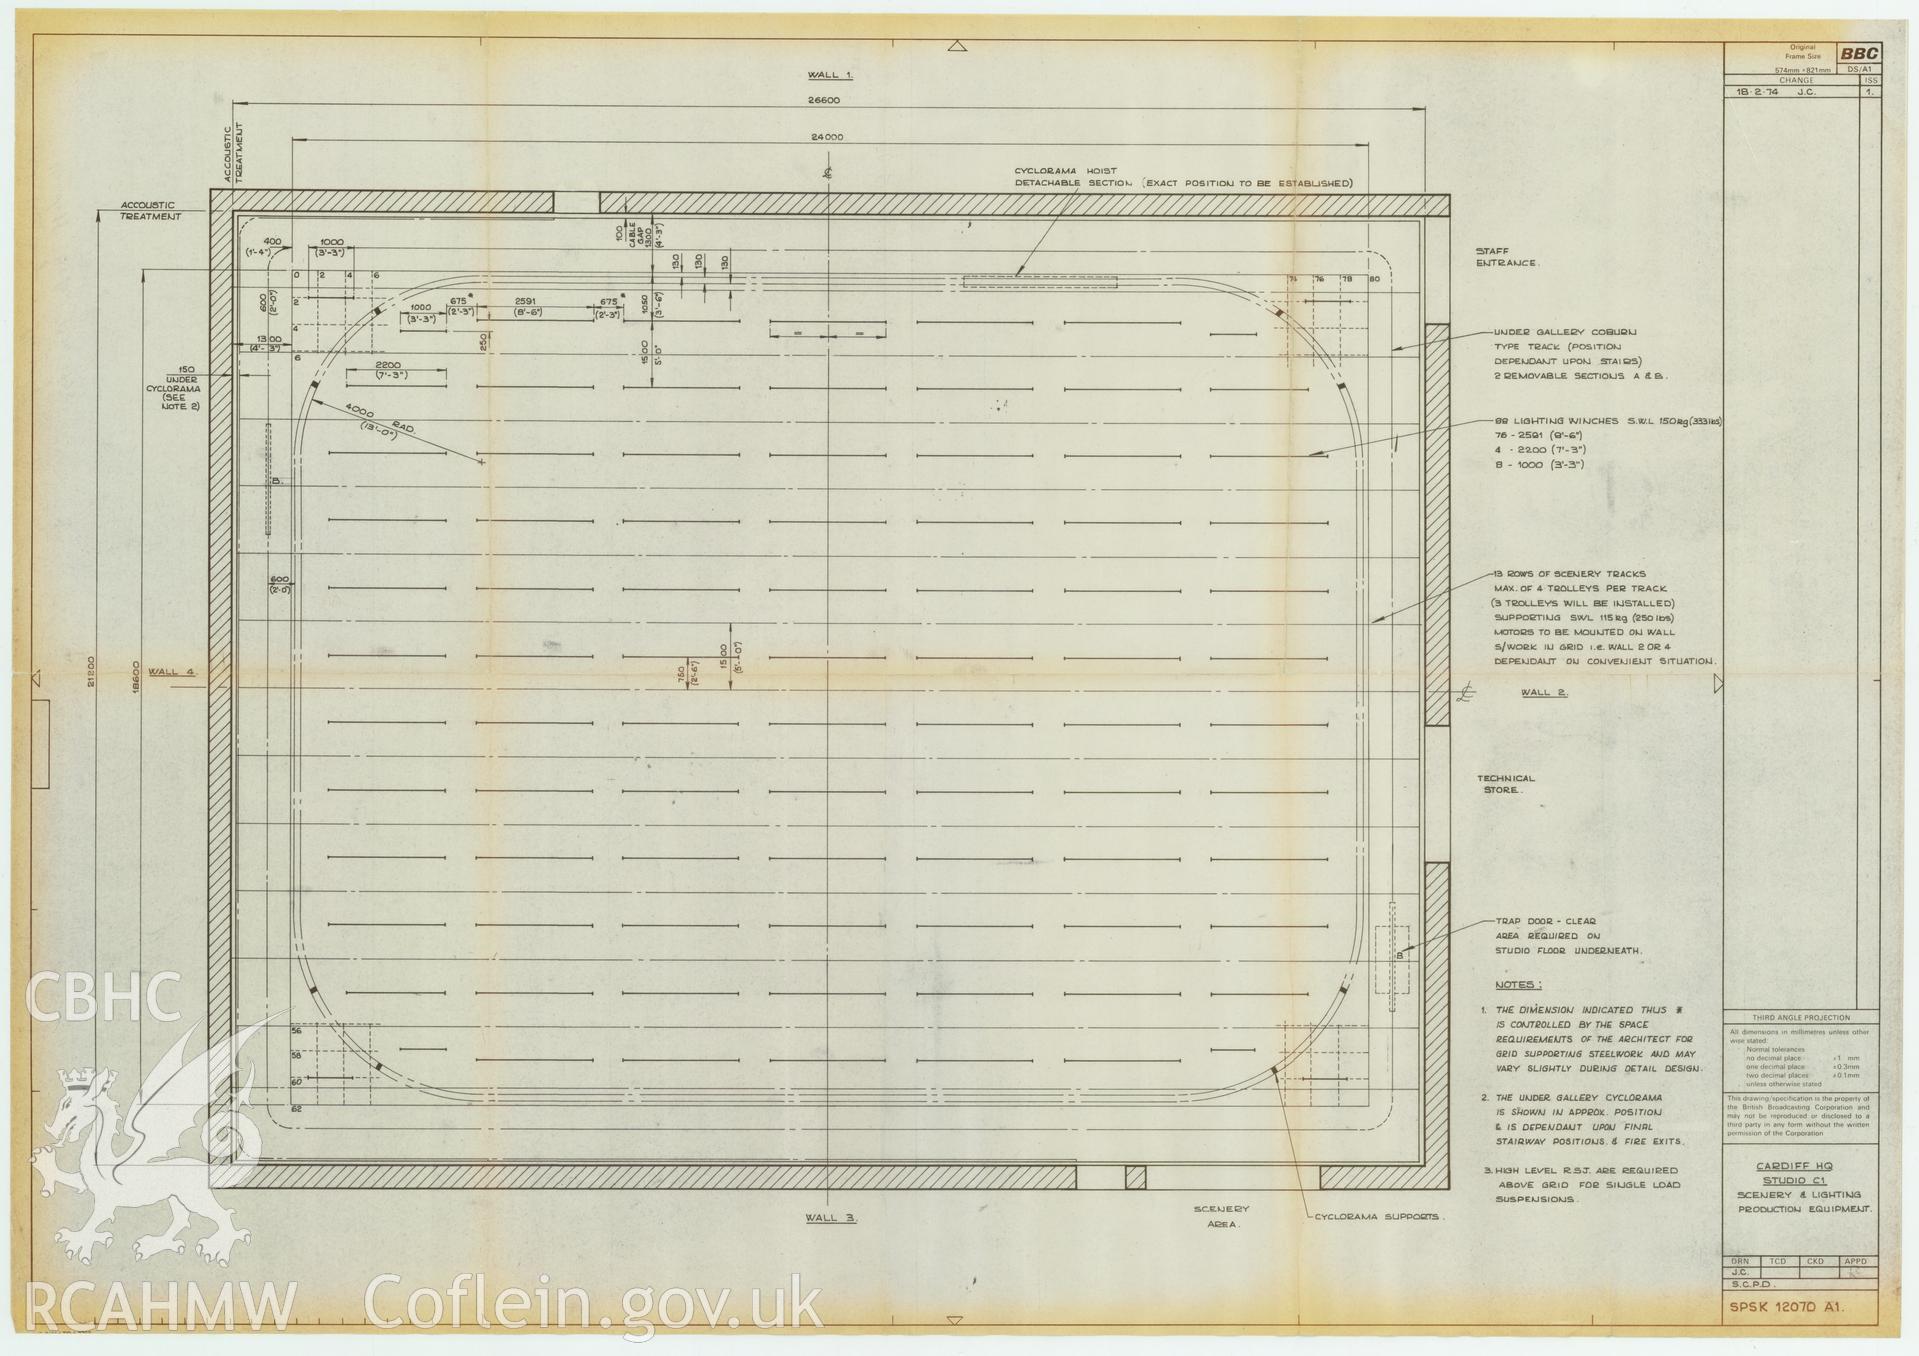 Original
Frame Size
574mm × 821mm
BBC
DS/A1
CHANGE ISS
18·2·74 J.C. 1.
WALL 1.
26600
24000
ACCOUSTIC
TREATMENT
ACCOUSTIC
TREATMENT
CYCLORAMA HOIST
DETACHABLE SECTION (EXACT POSITION TO BE ESTABLISHED)
100
CABLE
GAP
1300
(4'-3")
130
130
130
400
(1'-4")
1000
(3'-3")
0 2 4 6
2
4
6
600
(2'-0")
1300
(4'-3")
1000
(3'-3")
675 *
(2'-3")
2591
(8'-6")
675 *
(2'-3")
1050
(3'-6")
250
1500
5'-0"
= =
2200
(7'-3")
4000 RAD.
(13'-0")
150
UNDER
CYCLORAMA
(SEE
NOTE 2)
74 76 78 80
B.
600
(2'-0")
750
(2'-6")
1500
(5'-0")
21200
18600
WALL 4.
56
58
60
62
B
WALL 3.
STAFF
ENTRANCE.
UNDER GALLERY COBURN
TYPE TRACK (POSITION
DEPENDANT UPON STAIRS)
2 REMOVABLE SECTIONS A & B.
88 LIGHTING WINCHES S.W.L 150kg (333 lbs)
76 - 2591 (8'-6")
4 - 2200 (7'-3")
8 - 1000 (3'-3")
13 ROWS OF SCENERY TRACKS
MAX. OF 4 TROLLEYS PER TRACK
(3 TROLLEYS WILL BE INSTALLED)
SUPPORTING SWL 115 kg (250 lbs)
MOTORS TO BE MOUNTED ON WALL
S/WORK IN GRID i.e. WALL 2 OR 4
DEPENDANT ON CONVENIENT SITUATION.
WALL 2.
TECHNICAL
STORE.
TRAP DOOR - CLEAR
AREA REQUIRED ON
STUDIO FLOOR UNDERNEATH.
NOTES:
1. THE DIMENSION INDICATED THUS *
IS CONTROLLED BY THE SPACE
REQUIREMENTS OF THE ARCHITECT FOR
GRID SUPPORTING STEELWORK AND MAY
VARY SLIGHTLY DURING DETAIL DESIGN.
2. THE UNDER GALLERY CYCLORAMA
IS SHOWN IN APPROX. POSITION
& IS DEPENDANT UPON FINAL
STAIRWAY POSITIONS. & FIRE EXITS.
3. HIGH LEVEL R.S.J. ARE REQUIRED
ABOVE GRID FOR SINGLE LOAD
SUSPENSIONS.
SCENERY
AREA.
CYCLORAMA SUPPORTS.
THIRD ANGLE PROJECTION
All dimensions in millimetres unless other
wise stated:
Normal tolerances
no decimal place ±1 mm
one decimal place ±0.3mm
two decimal places ±0.1mm
unless otherwise stated
This drawing/specification is the property of
the British Broadcasting Corporation and
may not be reproduced or disclosed to a
third party in any form without the written
permission of the Corporation
CARDIFF HQ
STUDIO C1
SCENERY & LIGHTING
PRODUCTION EQUIPMENT.
DRN TCD CKD APPD
J.C.
S.C.P.D.
SPSK 12070 A1.
CBHC
RCAHMW Coflein.gov.uk